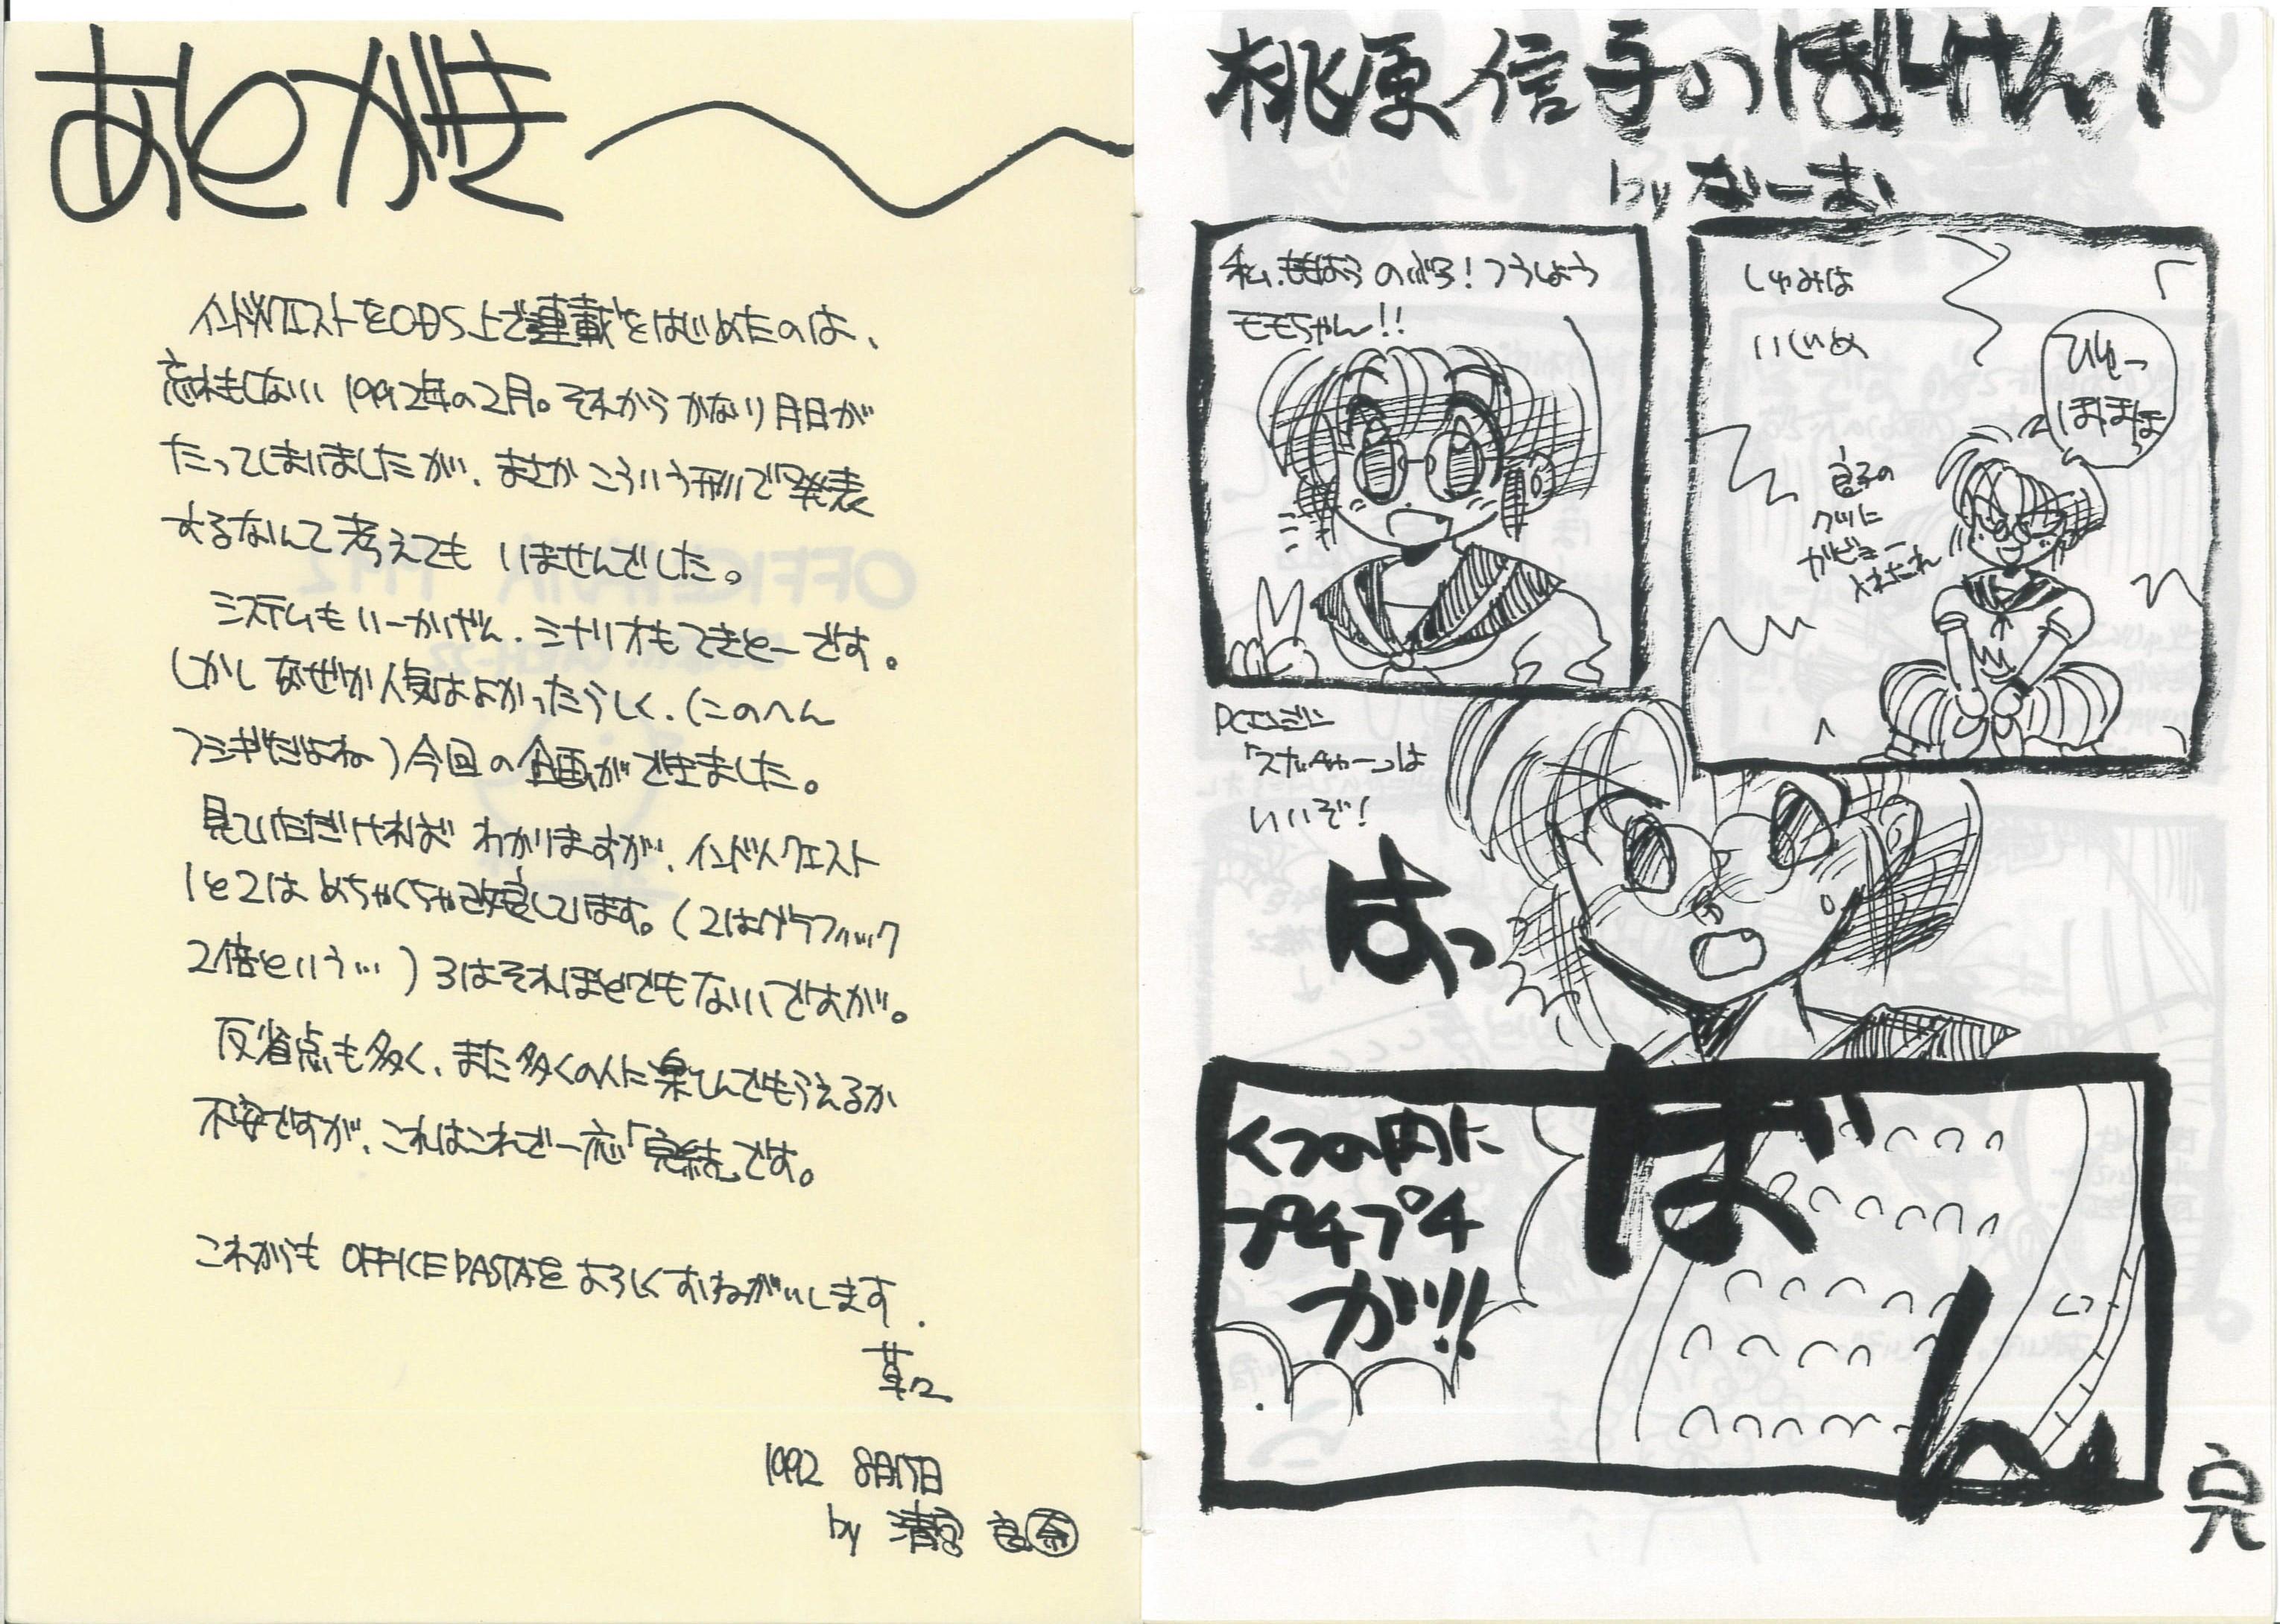 あとがき
インドクエストをOBS上で連載をはじめたのは、
忘れもしない1992年の2月。それからかなり月日が
たってしまいましたが、まさかこういう形で発表
するなんて考えてもいませんでした。
システムもいーかげん、シナリオもてきとーです。
しかしなぜか人気はよかったらしく、(このへん
フシギだよね)今回の企画ができました。
見ていただければわかりますが、インドクエスト
1と2はめちゃくちゃ改良しています。(2はグラフィック
2倍という…)3はそれほどでもないですが。
反省点も多く、また多くの人に楽しんでもらえるか
不安ですが、これはこれで一応「完結」です。
これからもOFFICE PASTAをよろしくおねがいします.
草々
1992 8月15日
by 清宮
桃原信子のぼーけん!
by なーお
私、ももはらのぶ子!つうしょう
モモちゃん!!
しゅみは
いじめ
ひゅー
ほほほ
良子の
クツに
がびょー
入れたれ
PCエンジン
「スナッチャー」は
いいぞ!
はっ
くつの内に
プチプチ
が!!
ぼーん
完